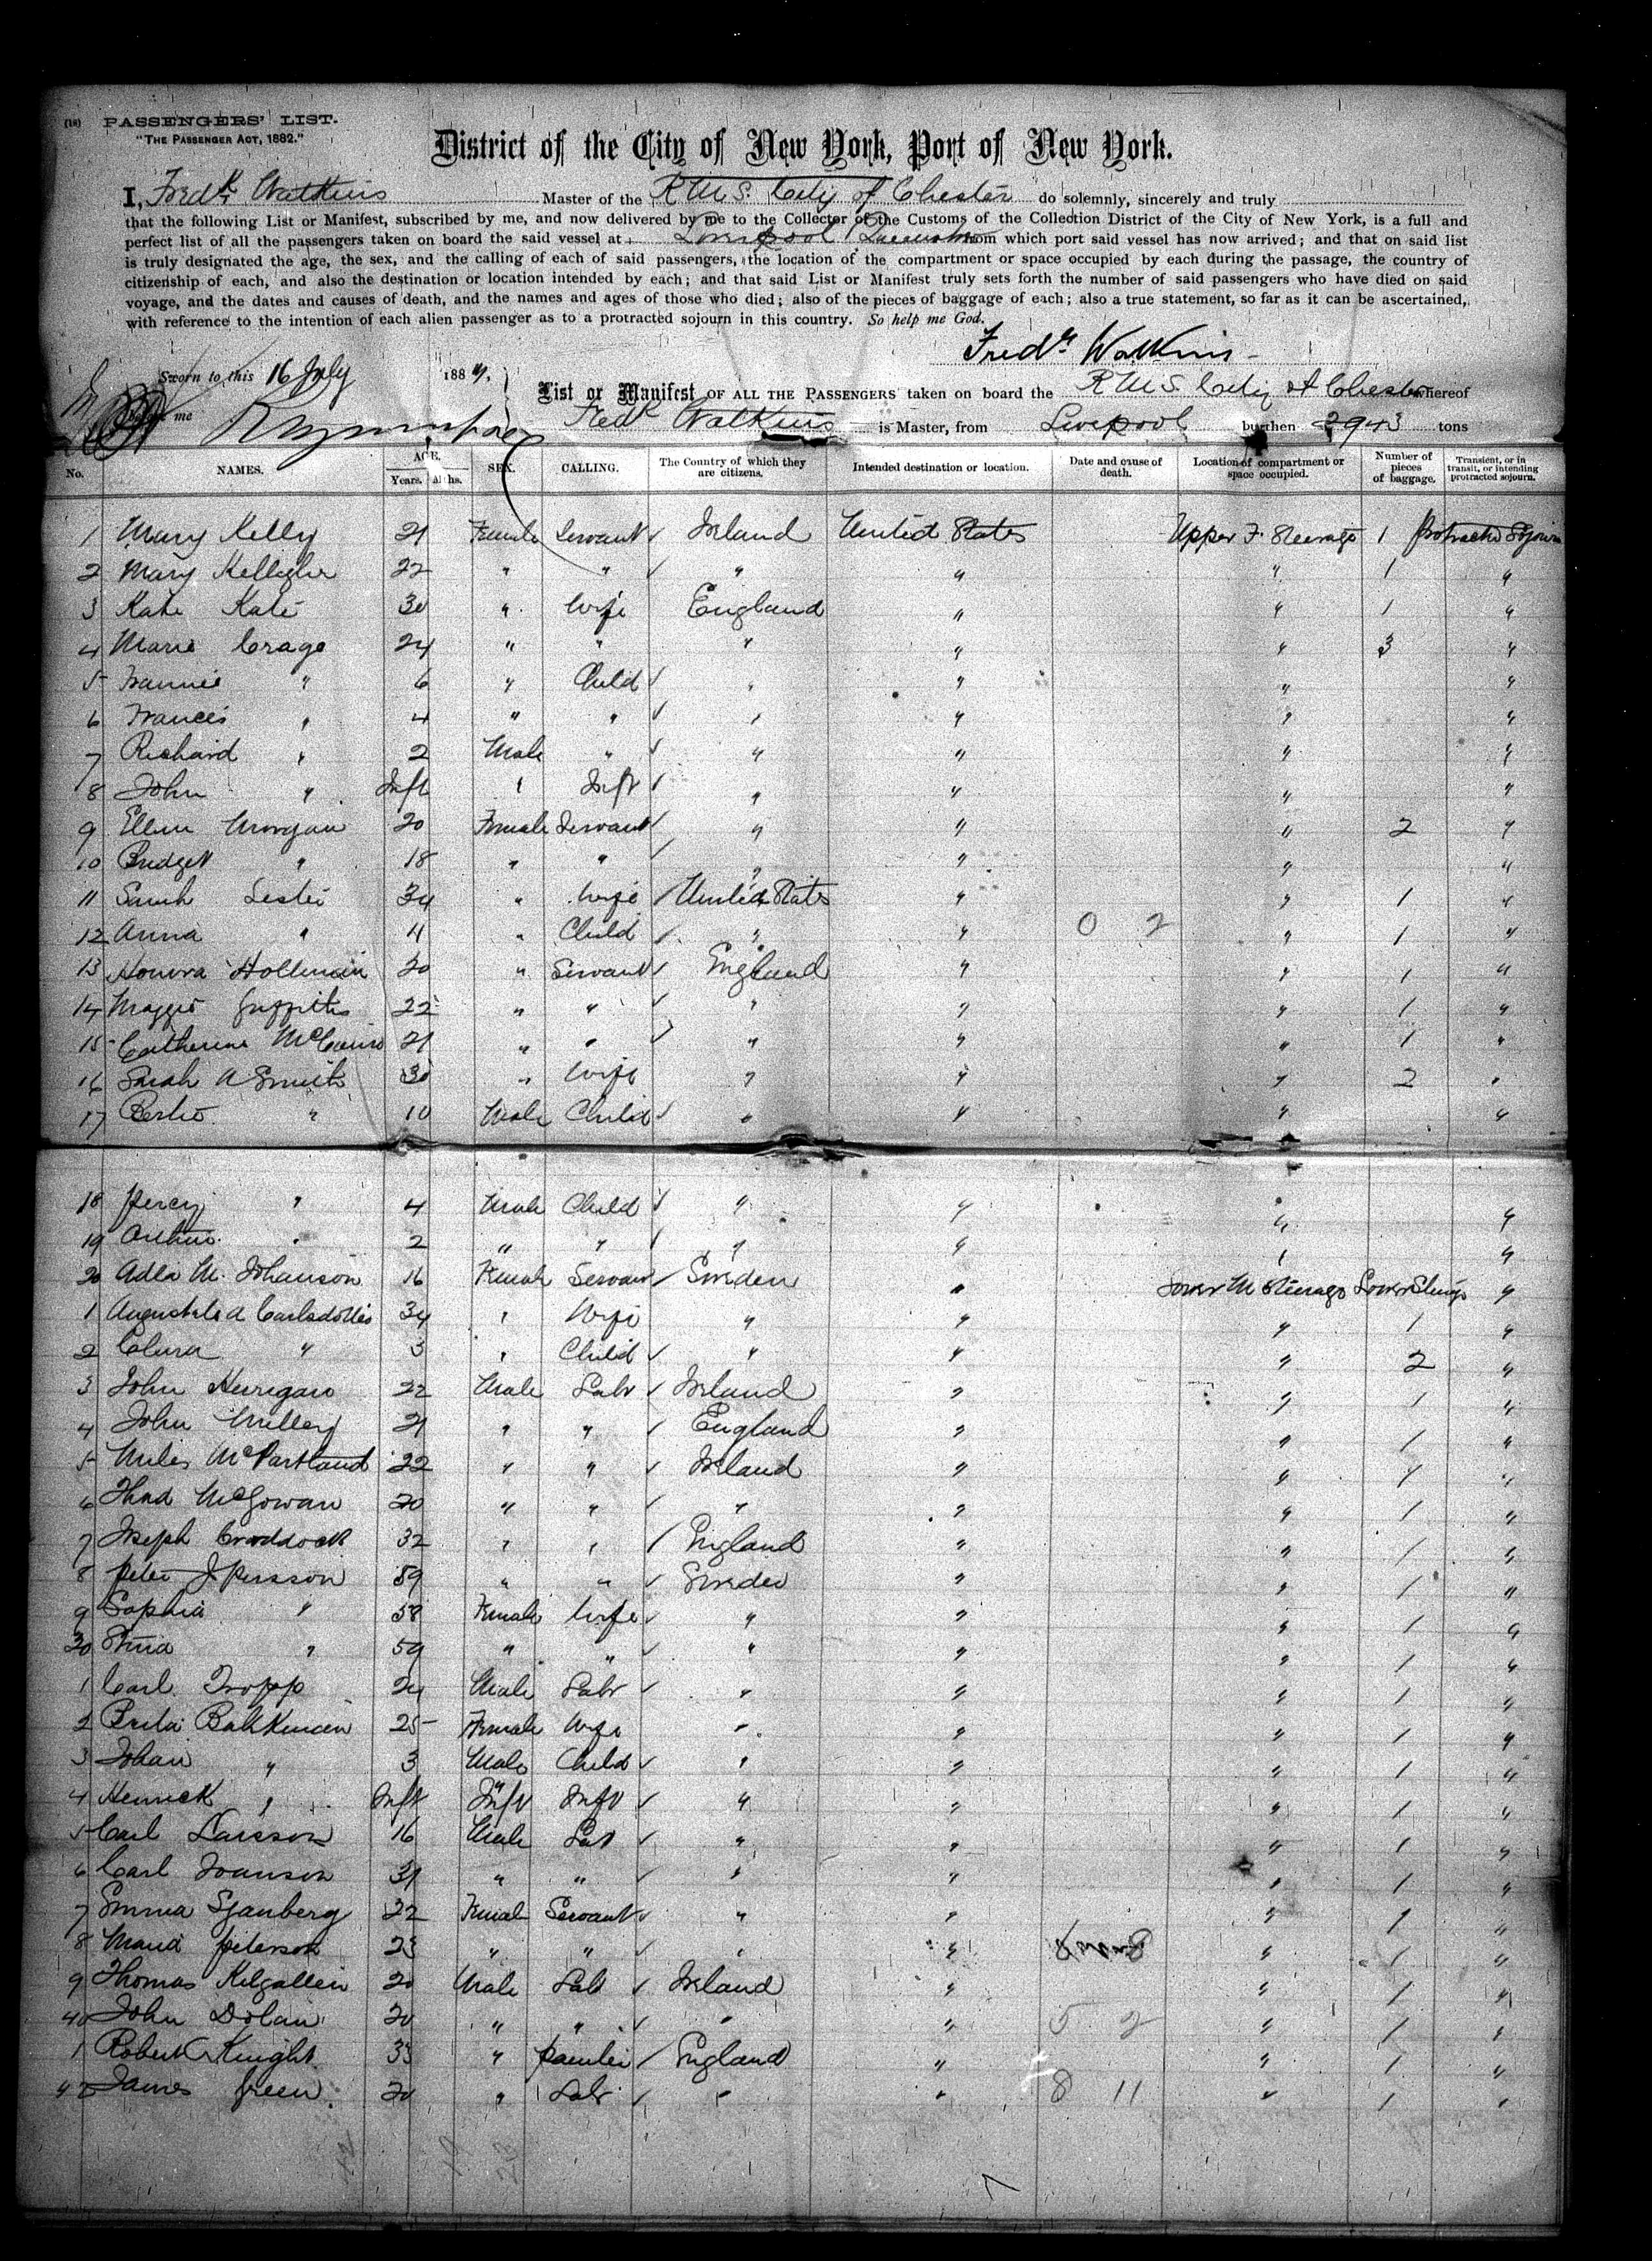 (18) PASSENGERS' LIST.
"THE PASSENGER ACT, 1882."
District of the City of New York, Port of New York.
I, Fredk Watkins Master of the R.M.S. City of Chester do solemnly, sincerely and truly
that the following List or Manifest, subscribed by me, and now delivered by me to the Collector of the Customs of the Collection District of the City of New York, is a full and
perfect list of all the passengers taken on board the said vessel at Liverpool & Queenstown from which port said vessel has now arrived; and that on said list
is truly designated the age, the sex, and the calling of each of said passengers, the location of the compartment or space occupied by each during the passage, the country of
citizenship of each, and also the destination or location intended by each; and that said List or Manifest truly sets forth the number of said passengers who have died on said
voyage, and the dates and causes of death, and the names and ages of those who died; also of the pieces of baggage of each; also a true statement, so far as it can be ascertained,
with reference to the intention of each alien passenger as to a protracted sojourn in this country. So help me God.
Fredk Watkins
Sworn to this 16 July 188
before me
List or Manifest OF ALL THE PASSENGERS taken on board the R.M.S. City of Chester whereof
Fredk Watkins is Master, from Liverpool burthen 2943 tons
No. NAMES. AGE. Years. Mths. SEX. CALLING. The Country of which they are citizens. Intended destination or location. Date and cause of death. Location of compartment or space occupied. Number of pieces of baggage. Transient, or in transit, or intending protracted sojourn.
1 Mary Kelly 21 Female Servant ✓ Ireland United States Upper F. Steerage 1 Protracted Sojourn
2 Mary Kelligher 22 " " ✓ " " " 1 "
3 Kate Kate 30 " Wife England " " 1 "
4 Marie Crago 24 " " " " " 3 "
5 Fannie " 6 " Child ✓ " " " "
6 Frances " 4 " " ✓ " " " "
7 Richard " 2 Male " ✓ " " " "
8 John " Inft " Inft ✓ " " " "
9 Ellen Morgan 20 Female Servant ✓ " " " 2 "
10 Bridget " 18 " " ✓ " " " "
11 Sarah Lester 34 " Wife ✓ United States " " 1 "
12 Anna " 4 " Child ✓ " " 0 2 " 1 "
13 Honora 20 " Servant ✓ England " " 1 "
14 Maggie Griffiths 22 " " ✓ " " " 1 "
15 Catherine 21 " " ✓ " " " 1 "
16 Sarah A Smith 30 " Wife " " " 2 "
17 Bertie " 10 Male Child ✓ " " " "
18 Percy " 4 Male Child ✓ " " " "
19 Arthur " 2 " " ✓ " " " "
20 Adla M. Johanson 16 Female Servant ✓ Sweden " Lower M Steerage "
1 34 " Wife " " " 1 "
2 Clara " 3 " Child ✓ " " " 2 "
3 John Kerrigan 22 Male Labr ✓ Ireland " " 1 "
4 John 21 " " ✓ England " " 1 "
5 Miles McPartland 22 " " ✓ Ireland " " 1 "
6 Thad McGowan 20 " " ✓ " " " 1 "
7 Joseph Craddock 32 " " ✓ England " " 1 "
8 Peter J Persson 59 " " ✓ Sweden " " 1 "
9 Sophia " 58 Female Wife ✓ " " " 1 "
30 " 59 " " ✓ " " " 1 "
1 Carl Tropp 24 Male Labr ✓ " " " 1 "
2 25 Female Wife " " " 1 "
3 Johan " 3 Male Child ✓ " " " 1 "
4 Henrick " Inft Inft Inft ✓ " " " 1 "
5 Carl Larsson 16 Male Lab ✓ " " " 1 "
6 Carl Ivanson 31 " " ✓ " " " 1 "
7 Emma Sjanberg 22 Female Servant ✓ " " " 1 "
8 Maria Peterson 23 " " ✓ " " " 1 "
9 Thomas Kilgallen 20 Male Lab ✓ Ireland " " 1 "
40 John Dolan 20 " " ✓ " " 5 2 " 1 "
1 Robert Knight 33 " Painter ✓ England " " 1 "
42 James Green 20 " Labr ✓ " " 8 11 " 1 "